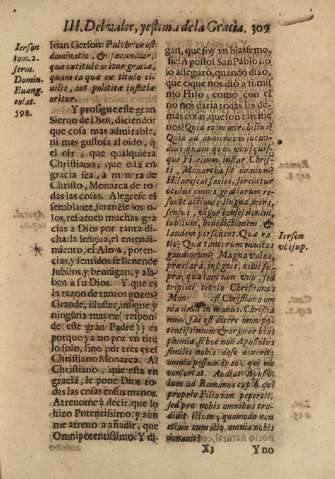 III. Del valor, y estima de la Gracia. 309
Ierson
tom. 2.
serm.
Domin.
Euang.
tolat.
398.
Ioan Gerson: Pulchrior est
dominatio, & fæcundior,
quæ titulo oritur gratiæ,
quam ea quæ ex titulo ciuilis,
aut politicæ iustitiæ
oritur.
Y prosigue este gran
Sieruo de Dios, diciendo:
que cosa mas admirable,
ni mas gustosa al oido, q̃
el oìr, que qualquiera
Christiano, que està en
gracia sea, a manera de
Christo, Monarca de todas
las cosas. Alegrese el
semblante, formẽ se los ojos,
resuenẽ muchas gracias
à Dios por tanta dicha
la lengua, el entendimiento,
el Alma, potencias,
y sentidos se llenẽ de
Jubilos, y bendigan, y alaben
à su Dios. Y que es
la razon de tanto gozo?
Grande, illustre, insigne y
ninguna mayor (responde
este gran Padre) y es
porque ya no por vn titulo
solo, sino por tres es el
Christiano Monarca. Al
Christiano, que esta en
gracia, le pone Dios todas
las cosas en sus manos.
Atreuome à decir, que lo
hizo Potentissimo, y aun
me atreuo a añadir, que
Omnipotentissimo. Y di-
gan, que soy vn blasfemo,
si el Apostol San Pablo no
lo asseguró, quando dixo,
que el que nos diò a si mismo
Hijo, como con el
no nos daria todas las demas
cosas, que son tan menos?
Quid enim mirabilius?
Quid ad audiendum iucundius
quam quod
Christiani instar Christi,
Monarcha sit omnium?
Hilarescat facies,
oculus omnis gratiarum resonet
actione, lingua, mens,
sensus, vigor
iubilum, benedictionem, &
laudem personent. Quæ ratio?
Quæ tantorum nouitas
gaudiorum? Magna vtique,
præclara, insignis,
quia iam non vno, sed
triplici titulo Christianus
Monarcha est Christiano omnia
dedit in manus. Christianum,
fas est dicere omnipotentissimum
& arguar blasphemiæ,
si hoc non Apostolus
similis nobis
omnia possum in eo, qui me
confortat. Audiat Apostolum
ad Romanos cap. 8. qui
proprio Filio non pepercit,
sed pro nobis omnibus tradidit
illum; quomodo non
etiam cum illo omnia nobis
donauit?
Ierson
vbi sup.
X3
Y no